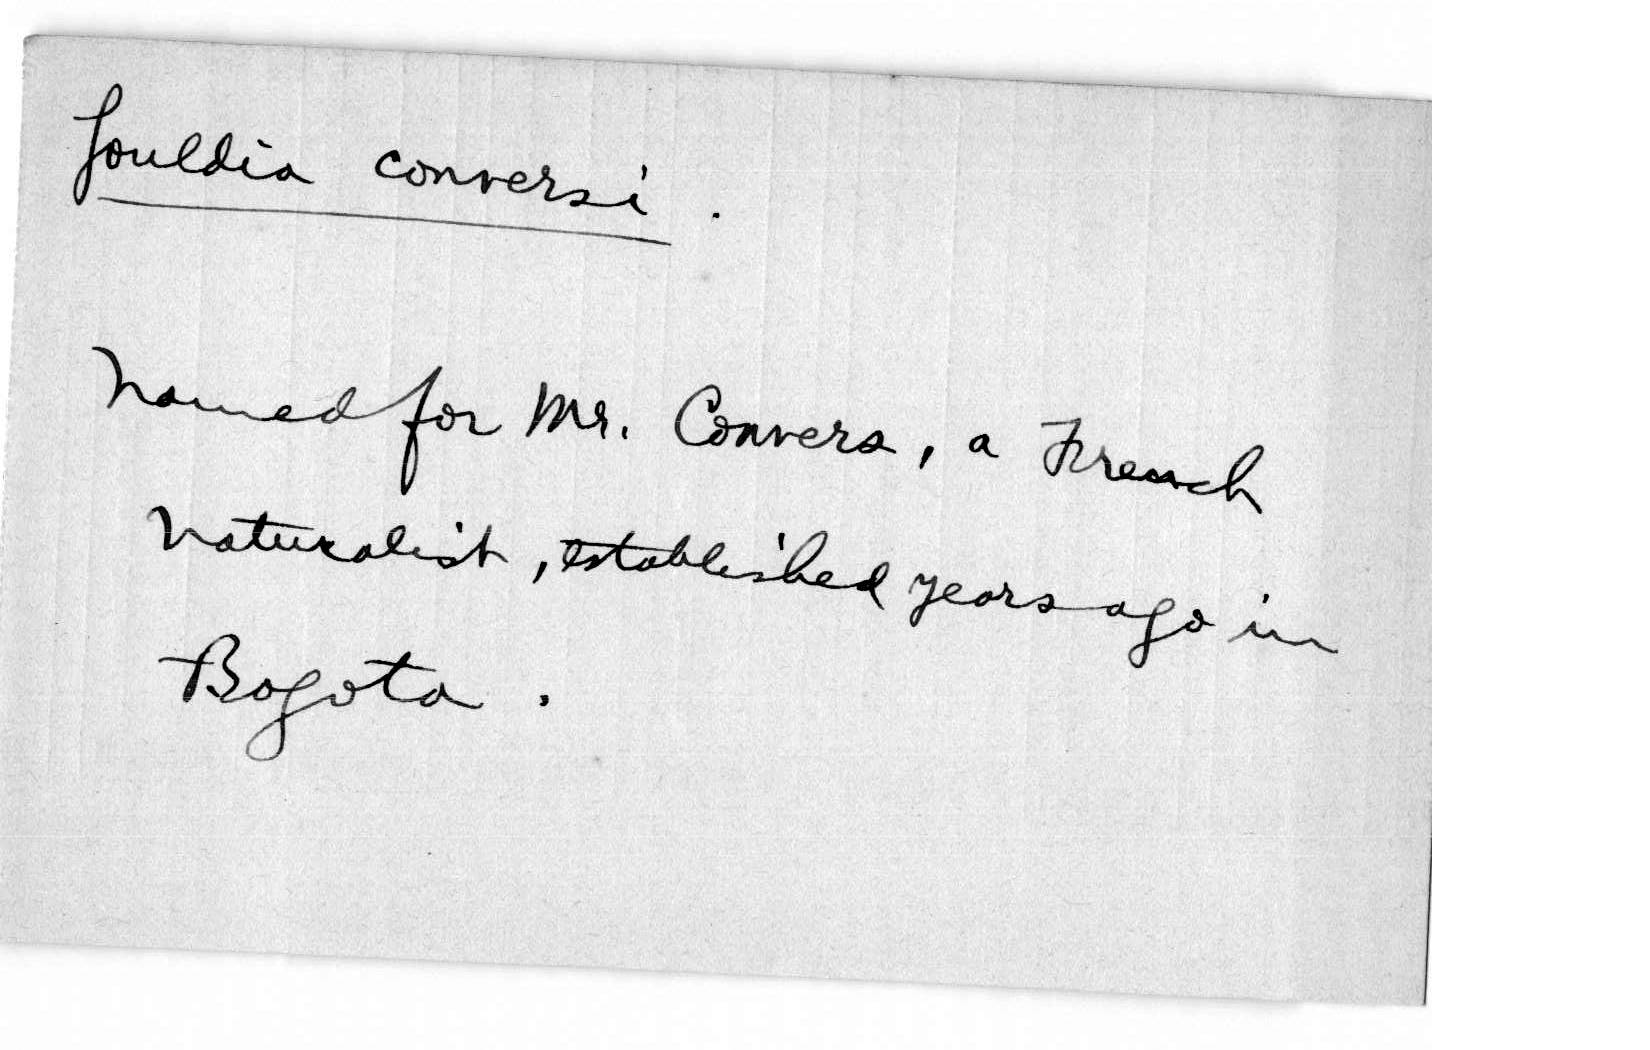 Gouldia conversi.
Named for Mr. Convers, a French
naturalist, established years ago in
Bogota.